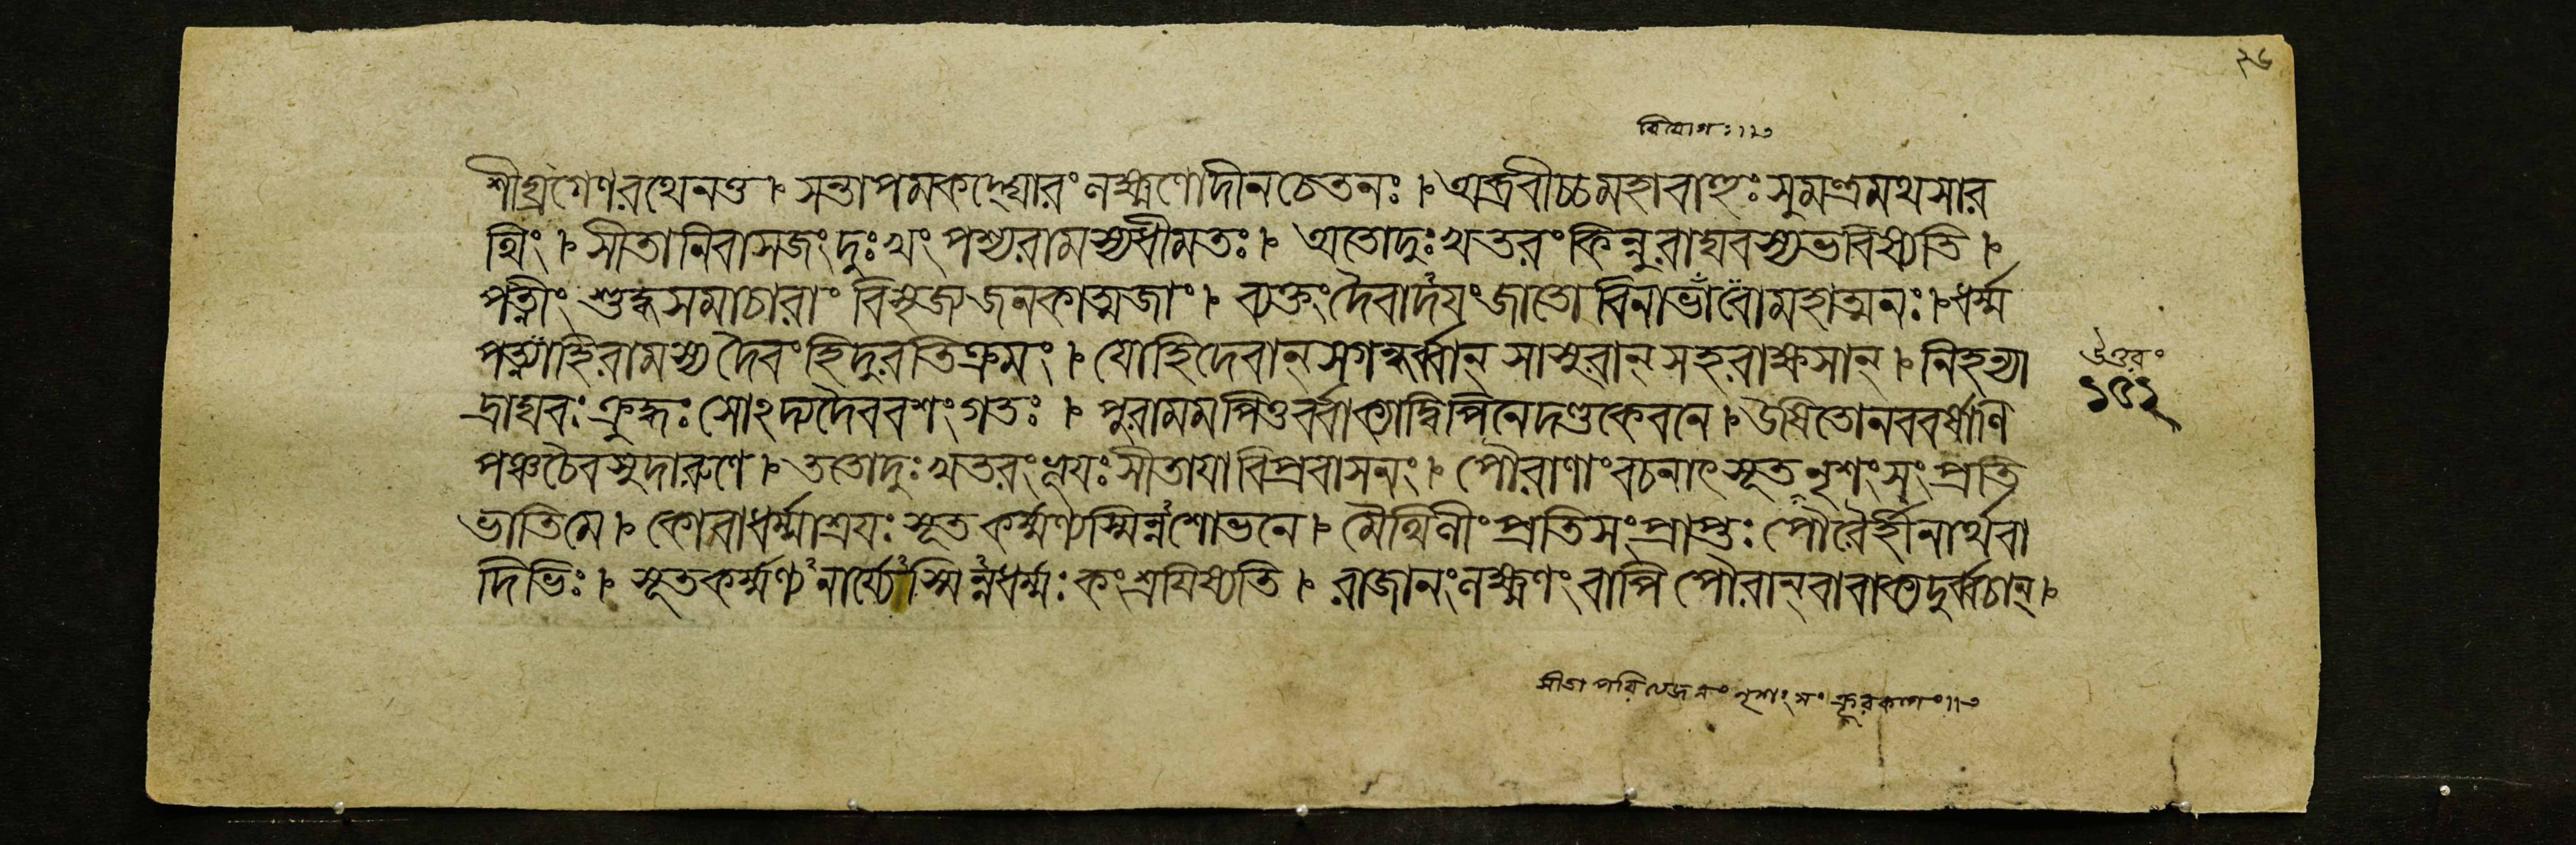 ২৬
বিয়োগঃ।।২৩
শীঘ্রগেণরথেনও । সন্তাপমকদ্ঘোরং লক্ষ্মণোদীনচেতনঃ । অব্রবীচ্চমহাবাহুঃ সুমন্ত্রমথসার
থিং । সীতানির্বাসজংদুঃখং পশ্যরামস্যধীমতঃ । অতোদুঃখতরং কিন্নুরাঘবস্যভবিষ্যতি ।
পত্নীং শুদ্ধসমাচারাং বিসৃজ্য জনকাত্মজাং । ব্যক্তং দৈবাদয়ংজাতো বিনাভাবোমহাত্মনঃ । ধর্ম্ম
পত্ন্যাহিরামস্য দৈবংহিদুরতিক্রমং । যোহিদেবান্ সগন্ধর্ব্বান্ সাসুরান্ সহরাক্ষসান্ । নিহন্যা
দ্রাঘবঃ ক্রুদ্ধঃ সোঽদ্যদৈববশংগতঃ । পুরামমপিতুর্বাক্যাদ্বিপিনেদণ্ডকেবনে । উষিতোনববর্ষাণি
পঞ্চচৈবসুদারুণে । ততোদুঃখতরংভূয়ঃ সীতায়াবিপ্রবাসনং । পৌরাণাংবচনাৎ সূত নৃশংসং প্রতি
ভাতিমে । কোবাধর্ম্মাশ্রয়ঃ সূত কর্ম্মণ্যস্মিন্নশোভনে । মৈথিলীং প্রতিসংপ্রাপ্তঃ পৌরৈর্হীনার্থবা
দিভিঃ । সূতকর্ম্মণ্যনার্য্যেস্মিন্নধর্ম্মঃ কংশ্রয়িষ্যতি । রাজানংলক্ষ্মণং বাপি পৌরান্ বাবাক্যদুর্ব্বচান্ ।
উত্তরং
১৫২
সীতাপরিত্যজনং নৃশংসং ক্রূরকর্ম্ম